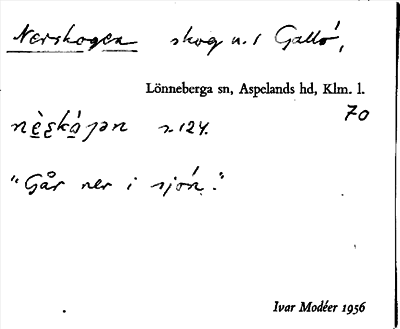 Nerskogen skog n. i Gallö,
Lönneberga sn, Aspelands hd, Klm. l.
70
s. 124.
"Går ner i sjön."
Ivar Modéer 1956